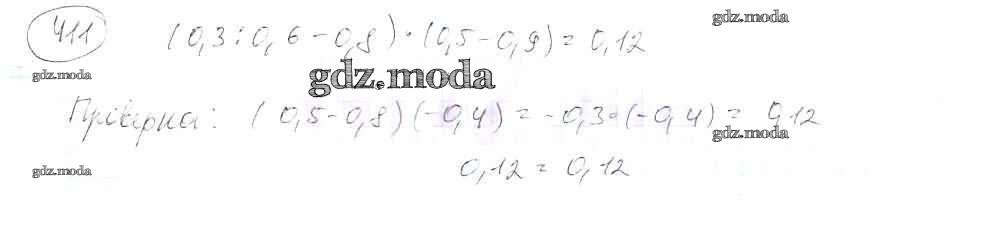 411 (0,3 : 0,6 - 0,8) · (0,5 - 0,9) = 0,12
gdz.moda
gdz.moda
gdz.moda
Проверка: (0,5 - 0,8)(-0,4) = -0,3 · (-0,4) = 0,12
gdz.moda
0,12 = 0,12
gdz.moda
gdz.moda